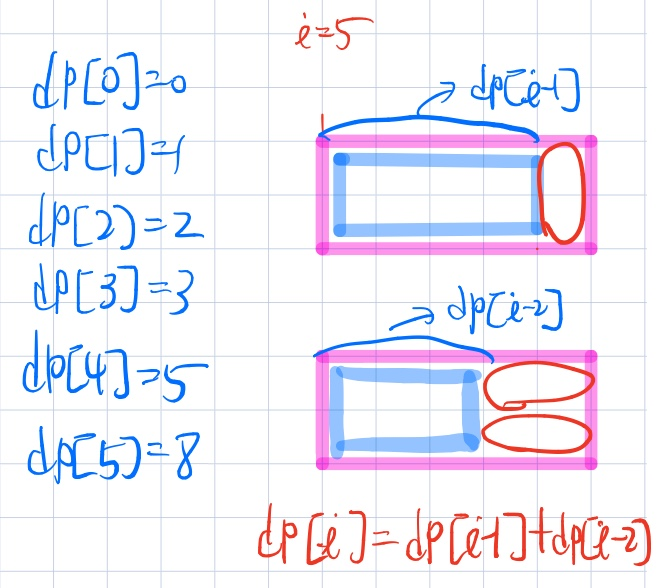 i=5
dp[0]=0
dp[1]=1
dp[2)=2
dp[3]=3
dp[4]=5
dp[5)=8
dp[i-1]
dp[i-2]
dp[i]=dp[i-1]+dp[i-2]